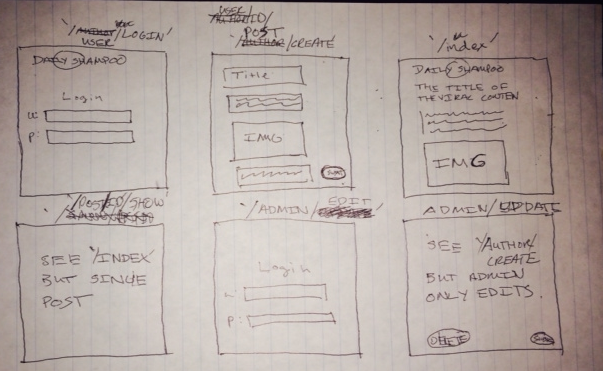 USER/LOGIN'
DAILY SHAMPOO
Login
U:
P:
USER/
ID/
POST
/CREATE
Title
IMG
'/index/'
DAILY SHAMPOO
THE TITLE OF
THE VIRAL CONTEN
IMG
'/POST/ID/SHOW
SEE '/INDEX/
BUT SINGLE
POST
'/ADMIN/EDIT'
Login
U:
P:
ADMIN/UPDATE
SEE '/AUTHOR/
CREATE
BUT ADMIN
ONLY EDITS.
DELETE